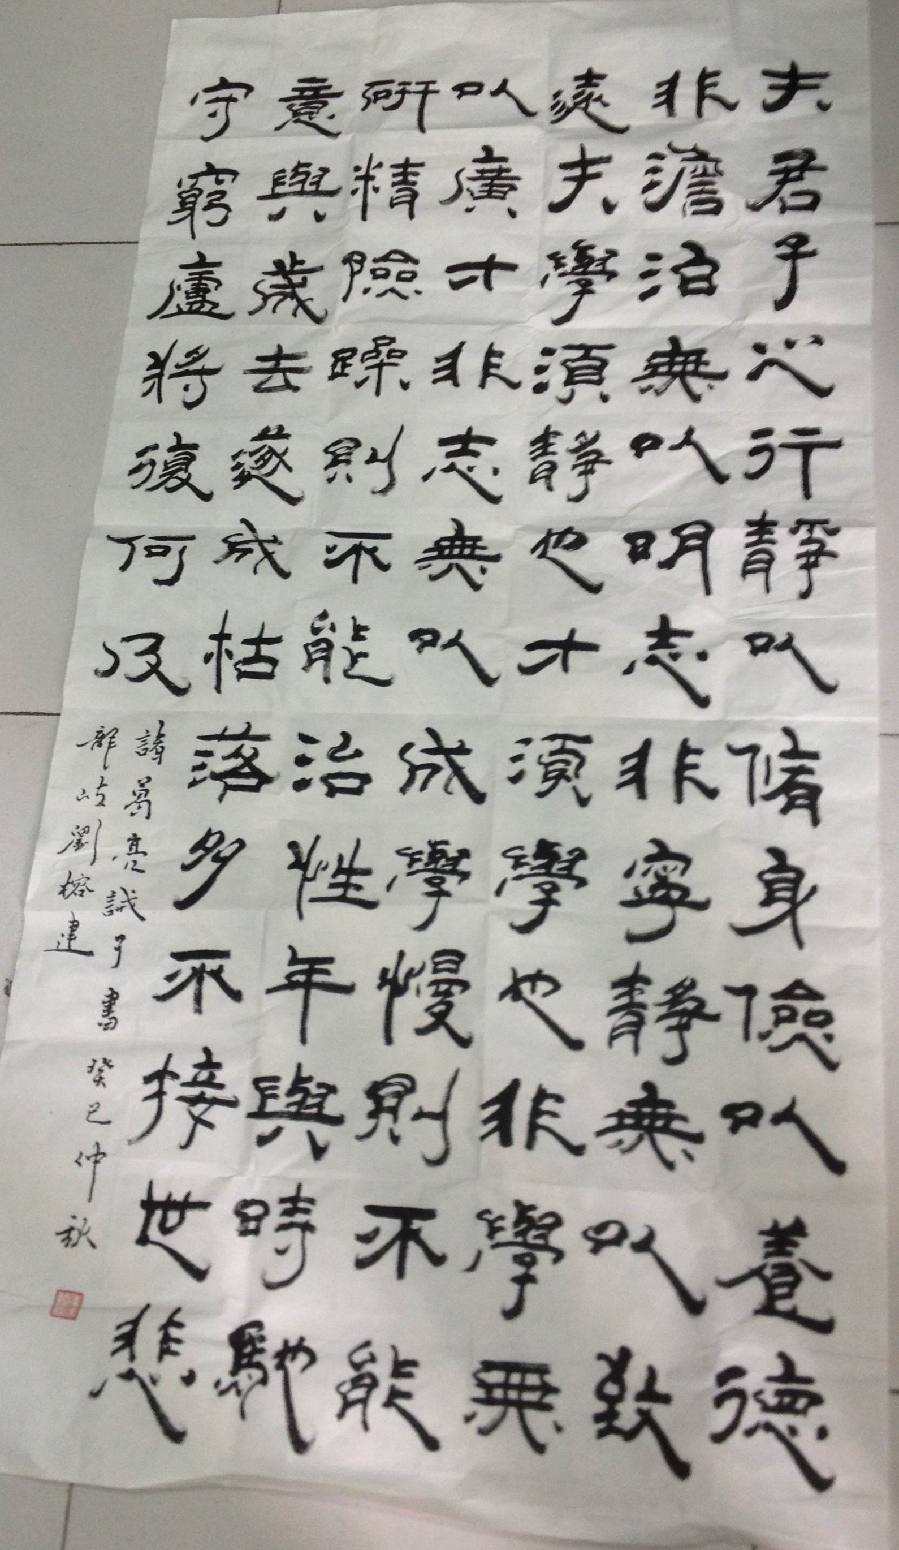 夫君子心行靜以脩身儉以養德
非澹泊無以明志非寧靜無以致
遠夫學須靜也才須學也非學無
以廣才非志無以成學慢則不能
研精險躁則不能治性年與時馳
意與歲去遂成枯落多不接世悲
守窮廬將復何及
諸葛亮誡子書 癸巳仲秋
岐劉榕建